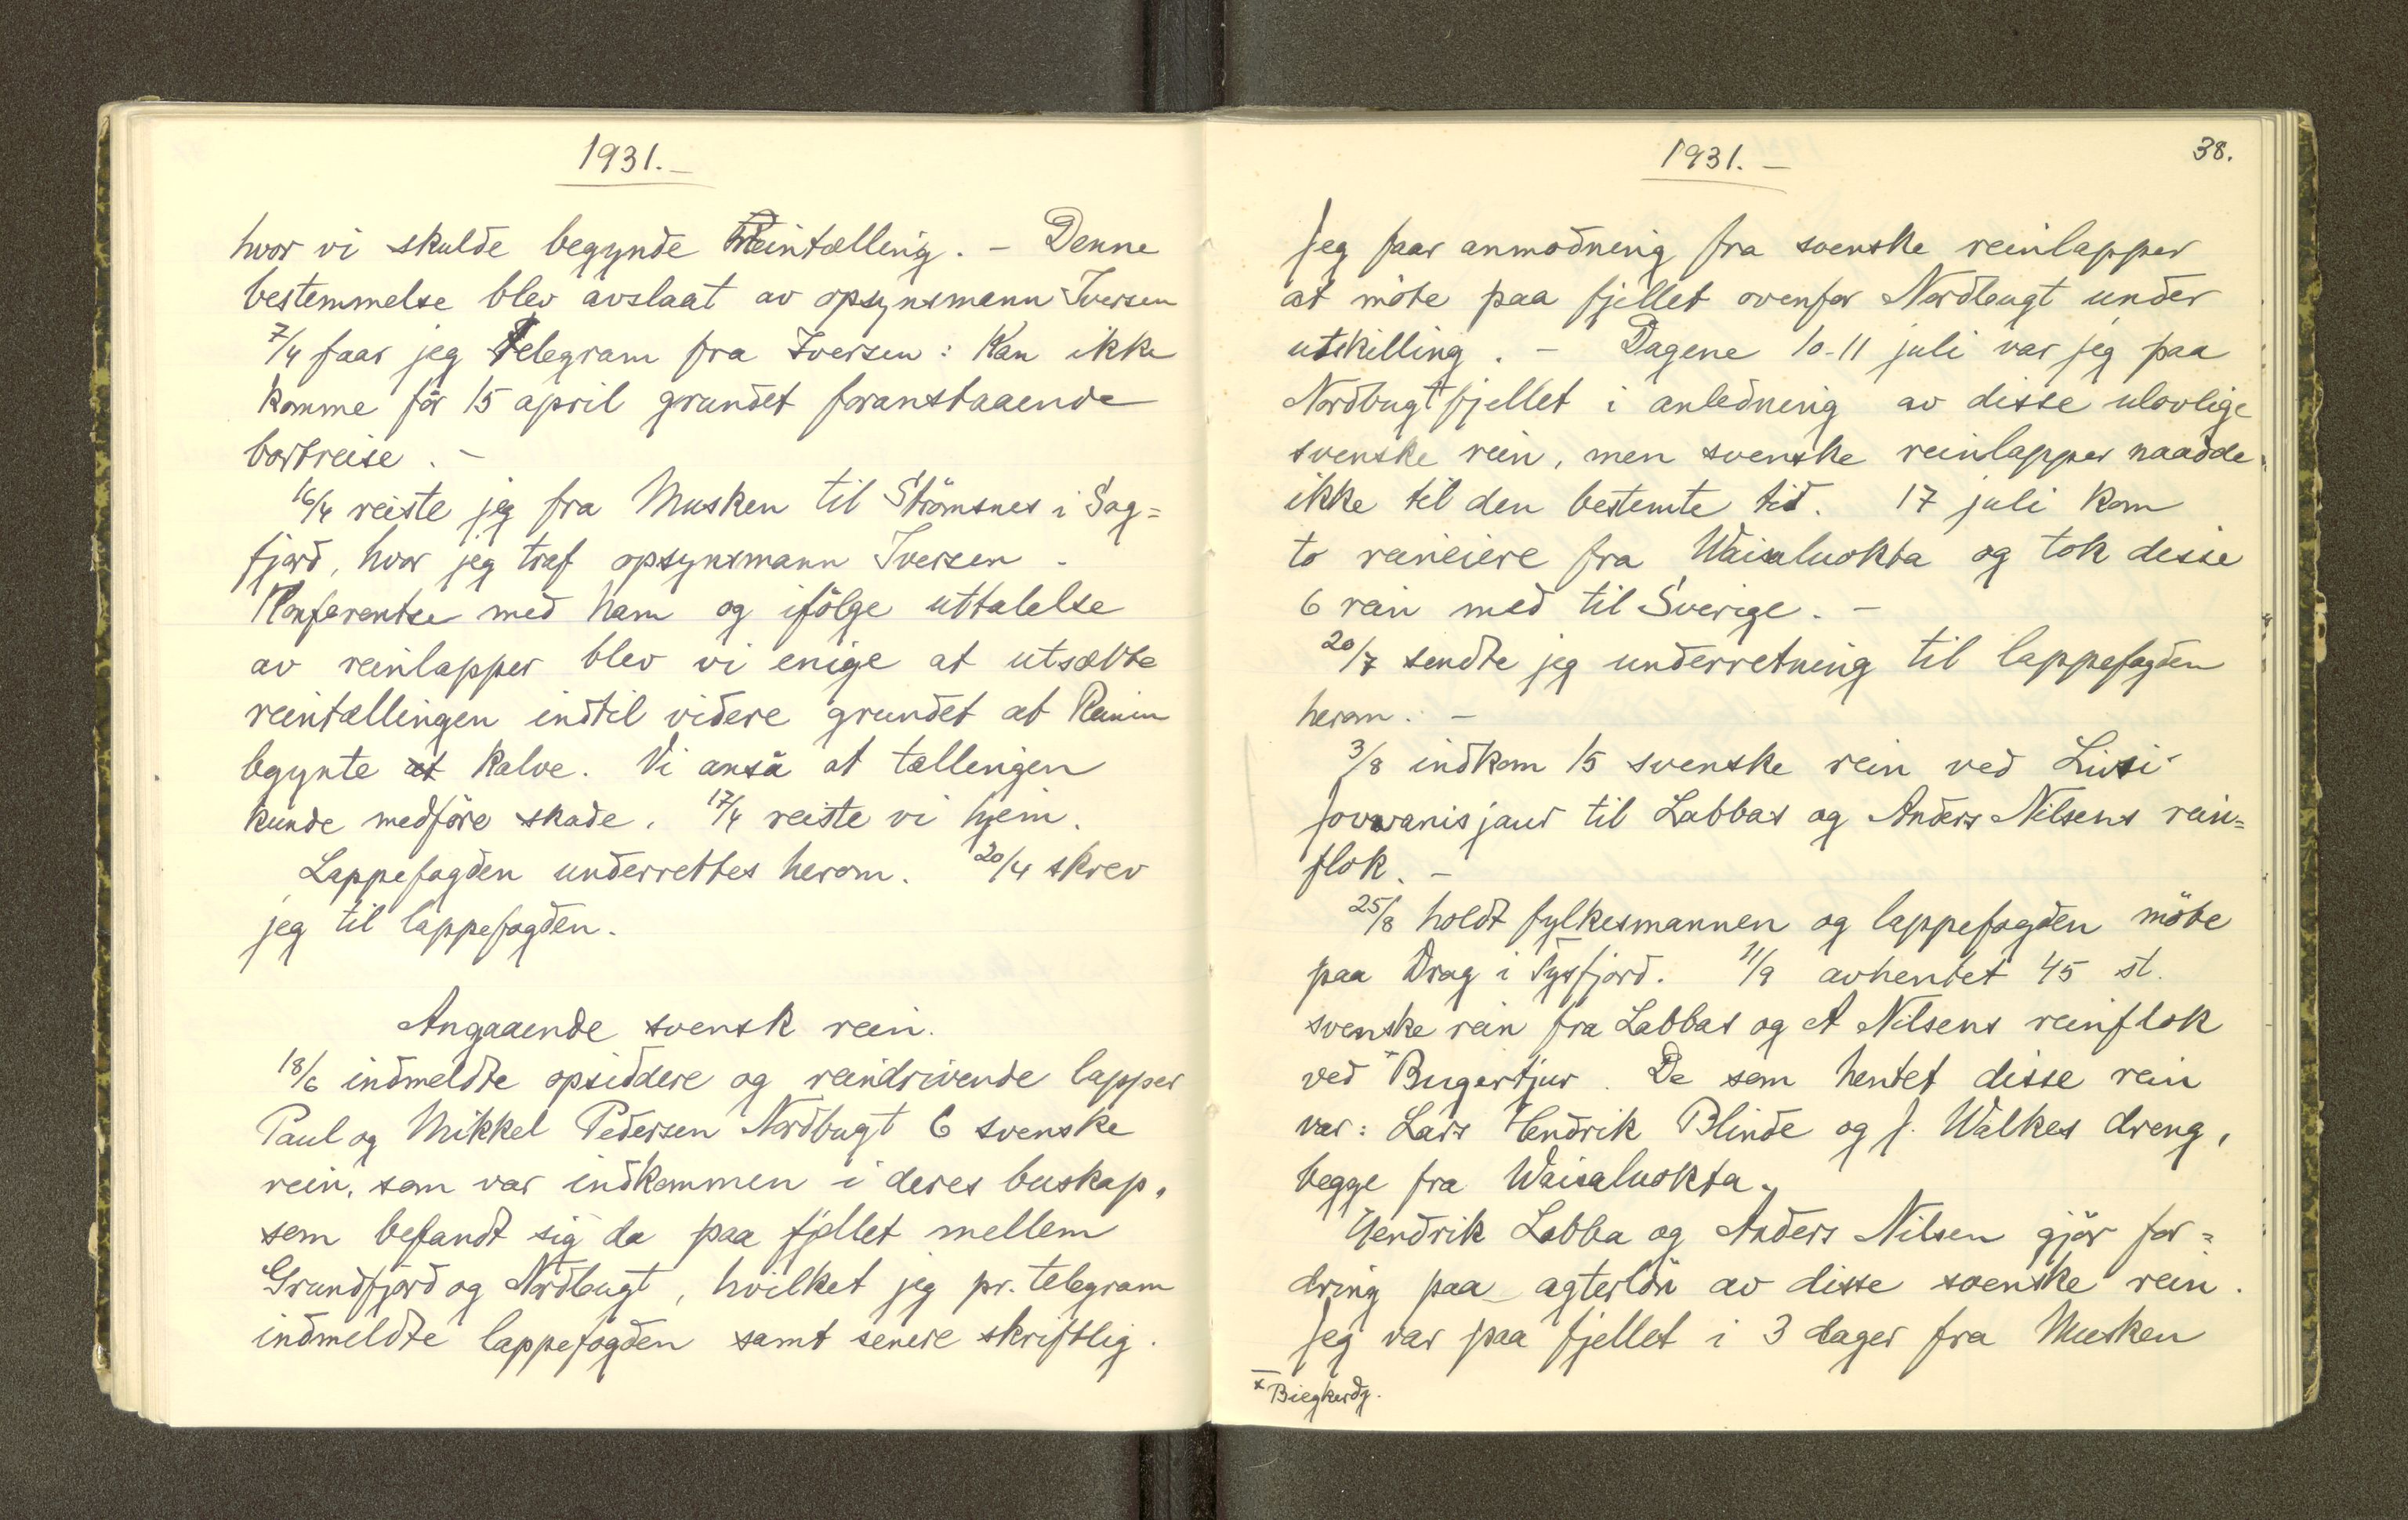 1931. –
hvor vi skulde begynde Reintælling. – Denne
bestemmelse blev avslaat av opsynsmann Iversen
7/4 faar jeg Telegram fra Iversen: Kan ikke
komme før 15 april grundet foranstaaende
bortreise. –
16/4 reiste jeg fra Musken til Strömsnes i Sag=
fjord, hvor jeg traf opsynsmann Iversen –
Konferentse med ham og ifölge uttalelse
av reinlapper blev vi enige at utsætte
reintællingen indtil videre grundet at Reinen
bgynte at kalve. Vi anså at tællingen
kunde medföre skade. 17/4 reiste vi hjem.
Lappefogden underrettes herom. 20/4 skrev
jeg til lappefogden.
Angaaende svensk rein.
18/6 indmeldte opsiddere og reindrivende lapper
Paul og Mikkel Pedersen Nordbugt 6 svenske
rein, som var indkommen i deres buskap,
som befandt sig da paa fjellet mellem
Grundfjord og Nordbugt, hvilket jeg pr. telegram
indmeldte lappefogden samt senere skriftlig.
1931. –
38.
Jeg faar anmodning fra svenske reinlapper
at möte paa fjellet ovenfor Nordbugt under
utskilling. – Dagene 10-11 juli var jeg paa
Nordbugtfjellet i anledning av disse ulovlige
svenske rein, men svenske reinlapper naadde
ikke til den bestemte tid. 17 juli kom
to reineiere fra Waisaluokta og tok disse
6 rein med til Sverige. –
20/7 sendte jeg underretning til lappefogden
herom. –
3/8 indkom 15 svenske rein ved Livsi-
jovvanisjaur til Labbas og Anders Nilsens rein=
flok. –
25/8 holdt fylkesmannen og lappefogden möte
paa Drag i Tysfjord. 11/9 avhentet 45 st.
svenske rein fra Labbas og A Nilsens reinflok
ved x Bugertjur. De som hentet disse rein
var: Lars Hendrik Blinde og J. Walkes dreng,
begge fra Waisaluokta.
Hendrik Labba og Anders Nilsen gjör for=
dring paa agterlön av disse svenske rein.
Jeg var paa fjellet i 3 dager fra Musken
x Biegkerdg.